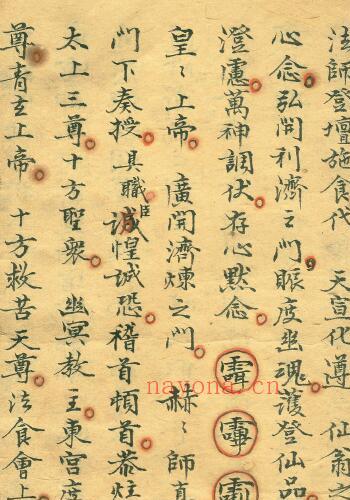 法師登壇施食代 天宣化遵 仙翁
心念弘開利濟之門賑度幽魂護登仙品
澄慮萬神調伏存心默念
皇〻上帝 廣開濟煉之門 赫〻師真
門下奏授 具職 臣 誠惶誠恐稽首頓首恭炷
太上三尊十方聖衆 幽冥教主東宮度
尊青玄上帝 十方救苦天尊法食會上
nayona.cn